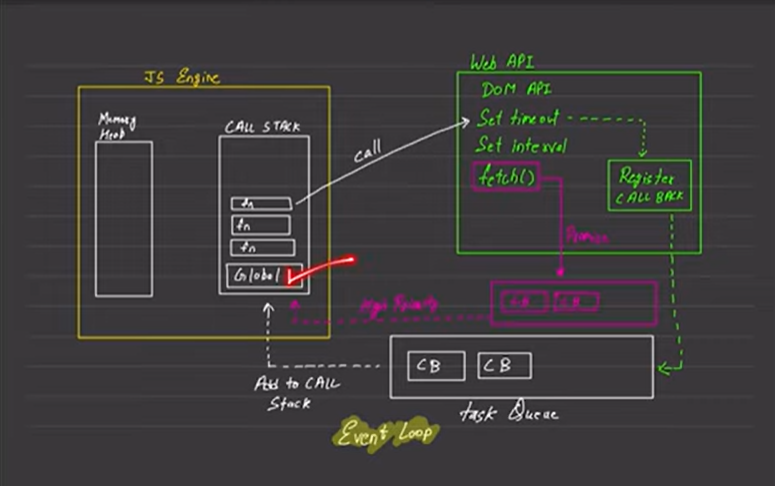 JS Engine
Memory
Heap
CALL STACK
fn
fn
fn
Global
call
Web API
DOM API
Set timeout
Set interval
fetch()
Register
CALL BACK
Promise
CB
CB
High Priority
CB
CB
task Queue
Add to CALL
Stack
Event Loop